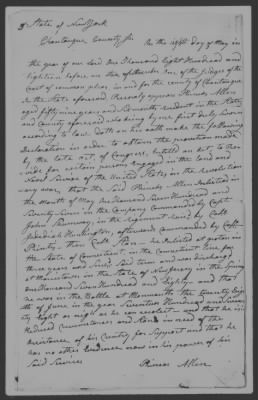 State of New York
Chautauque County Ss. On the eighth day of May in
the year of our Lord One Thousand Eight Hundred and
Eighteen before me the Subscriber one of the Judges of the
Court of common pleas, in and for the County of Chautauque
in the State aforesaid Personally appeared Phineas Allen
aged fifty nine years and resident in the State
and County aforesaid who being by me first duly Sworn
according to law doth on his oath make the following
Declaration in order to obtain the provision made
by the late Act of Congress, entitled an act to Pro-
vide for certain persons engaged in the land and
Naval Service of the United States in the Revolution-
ary war, that the Said Phineas Allen Enlisted in
the month of May One Thousand Seven Hundred and
Seventy Seven in the Company Commanded by Capt
John in the Regiment Com'd by Colo
Jedediah Huntington, afterwards commanded by Colo
then Colo he enlisted at
the State of Connecticut in the Connecticut line for
three years and served said term and was discharged
at Morristown in the State of New Jersey in the Spring
One Thousand Seven Hundred and Eighty and that
he was in the Battle at Monmouth the twenty Eigh
th of June in the year Seventeen Hundred and Seven
ty Eight as nigh as he can recolect and that he is in
Reduced circumstances and Stands in need of the
assistance of his Country for Support and that he
has no other Evidence now in his power of his
Said Services
Phineas Allen